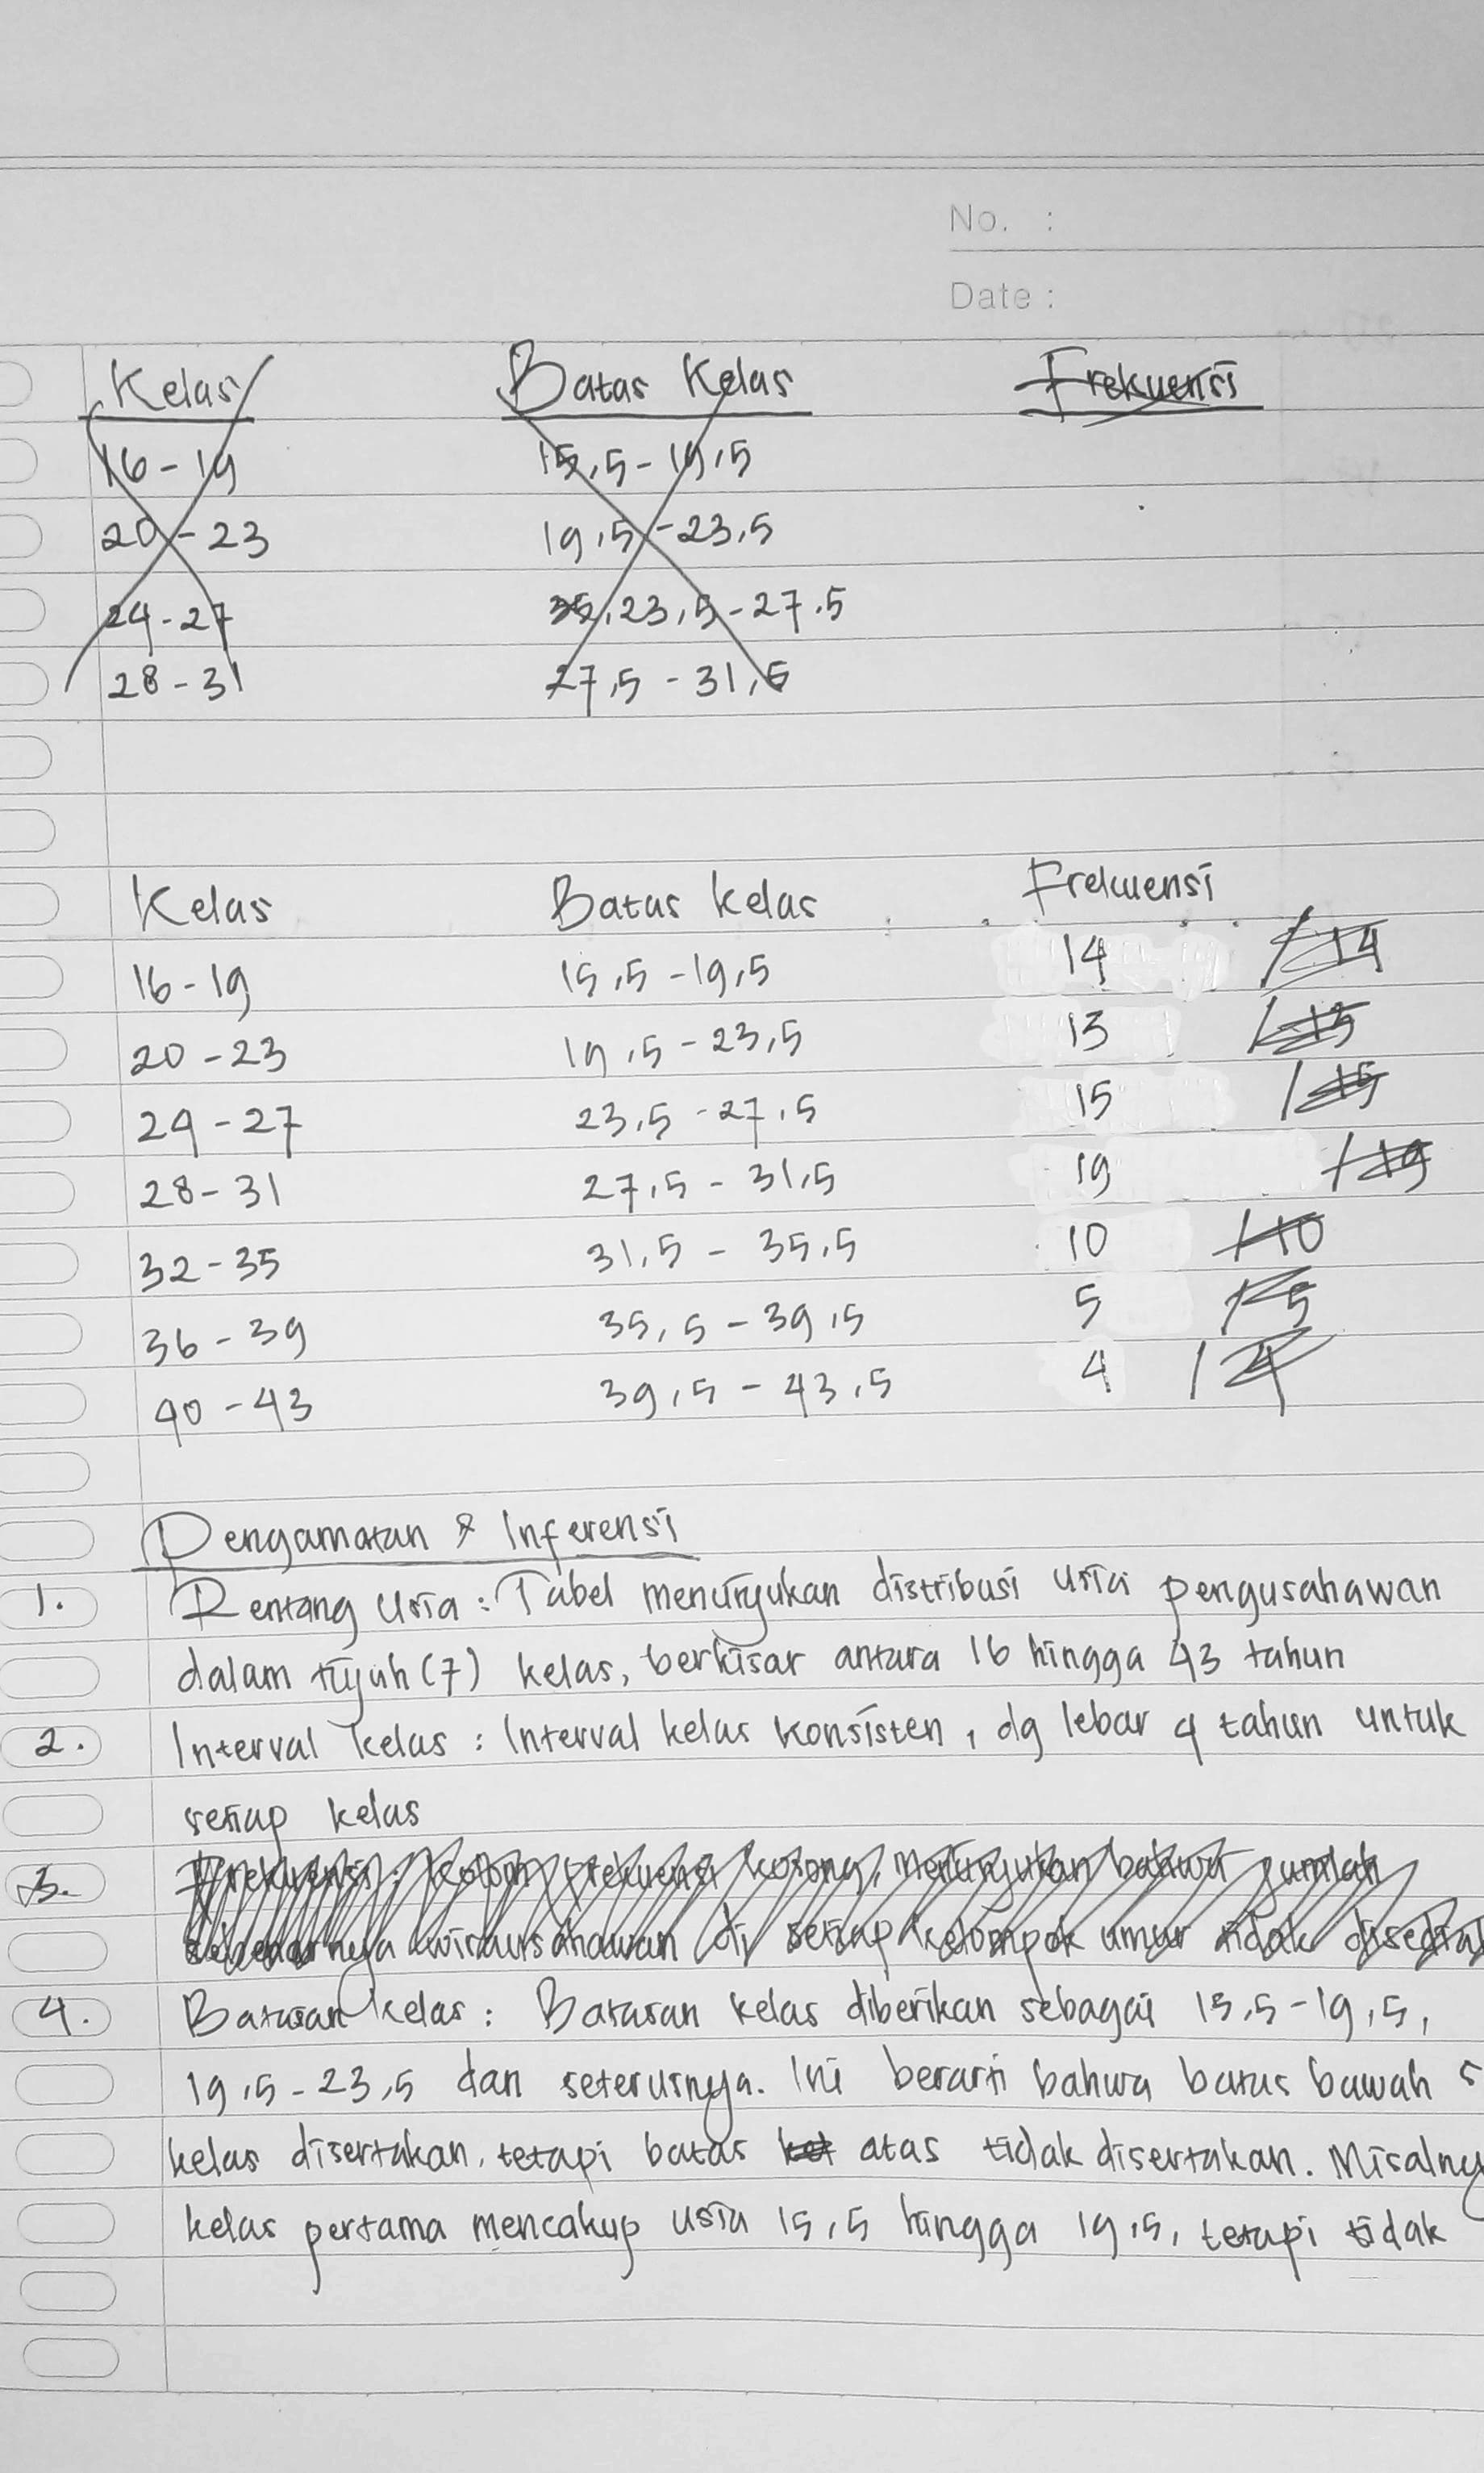 No. :
Date :
Kelas Batas Kelas Frekuensi
16-19 15,5-19,5
20-23 19,5-23,5
24-27 23,5-27.5
28-31 27,5-31,5
Kelas Batas kelas Frekuensi
16-19 15,5-19,5 14 14
20-23 19,5-23,5 13 13
24-27 23,5-27,5 15 15
28-31 27,5-31,5 19 19
32-35 31,5-35,5 10 10
36-39 35,5-39,5 5 5
40-43 39,5-43,5 4 4
Pengamatan & Inferensi
1. Rentang Usia: Tabel menunjukan distribusi usia pengusahawan
dalam tujuh (7) kelas, berkisar antara 16 hingga 43 tahun
2. Interval kelas: Interval kelas konsisten, dg lebar 4 tahun untuk
setiap kelas
3. Frekuensi: kolom frekuensi kosong, menunjukan bahwa jumlah
sebenarnya wirausahawan di setiap kelompok umur tidak
4. Batasan kelas: Batasan kelas diberikan sebagai 15,5-19,5,
19,5-23,5 dan seterusnya. Ini berarti bahwa batas bawah
kelas disertakan, tetapi batas kel atas tidak disertakan. Misalny
kelas pertama mencakup usia 15,5 hingga 19,5, tetapi tidak